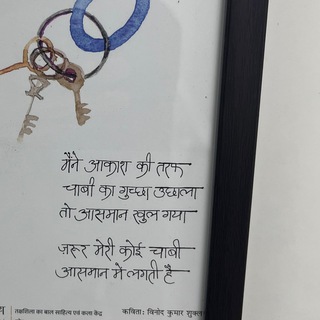 मैंने आकाश की तरफ
चाबी का गुच्छा उछाला
तो आसमान खुल गया
ज़रूर मेरी कोई चाबी
आसमान में लगती है
तक्षशिला का बाल साहित्य एवं कला केंद्र
कविता: विनोद कुमार शुक्ल